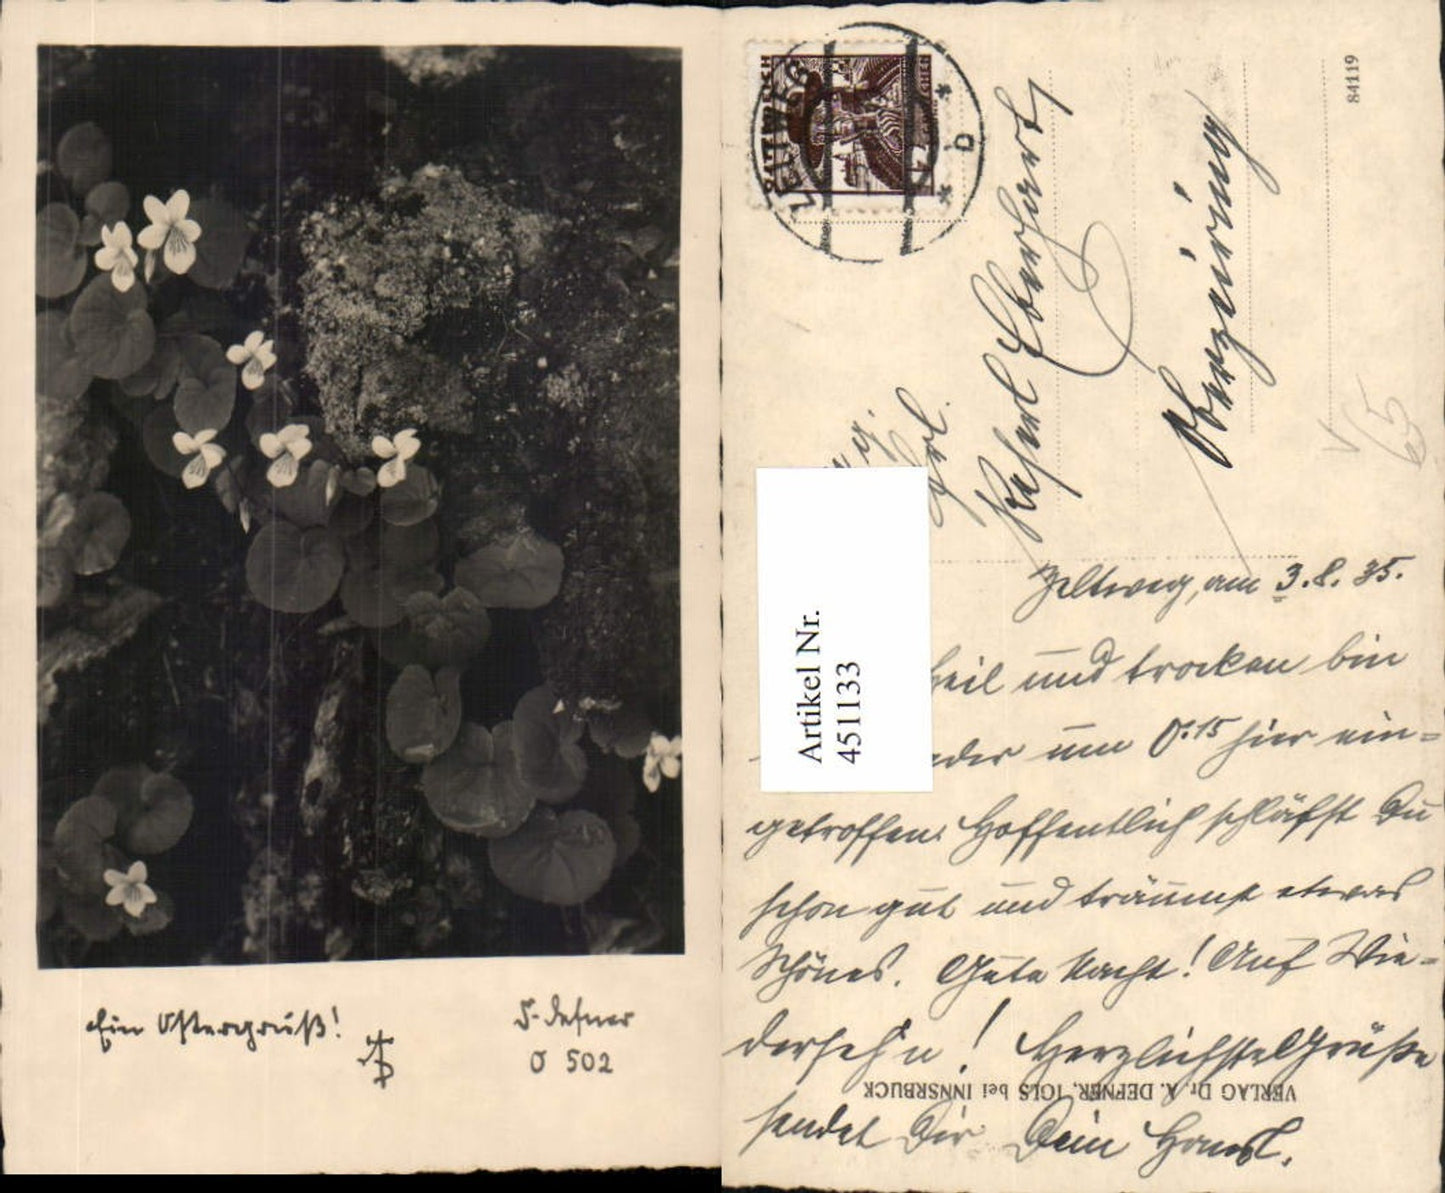 Ein Ostergruß!
F. Defner
O 502
ZELTWEG
84119
Frl.
Eberhardt
Oberzeiring
65
Artikel Nr.
451133
Zeltweg, am 3.8.35.
heil und trocken bin
um 0.15 hier ein=
getroffen. Hoffentlich schläfst Du
schon gut und träumst etwas
Schönes. Gute Nacht! Auf Wie=
derseh'n! Herzlichste Grüße
sendet Dir Dein Hansl.
VERLAG Dr. A. DEFNER, IGLS bei INNSBRUCK